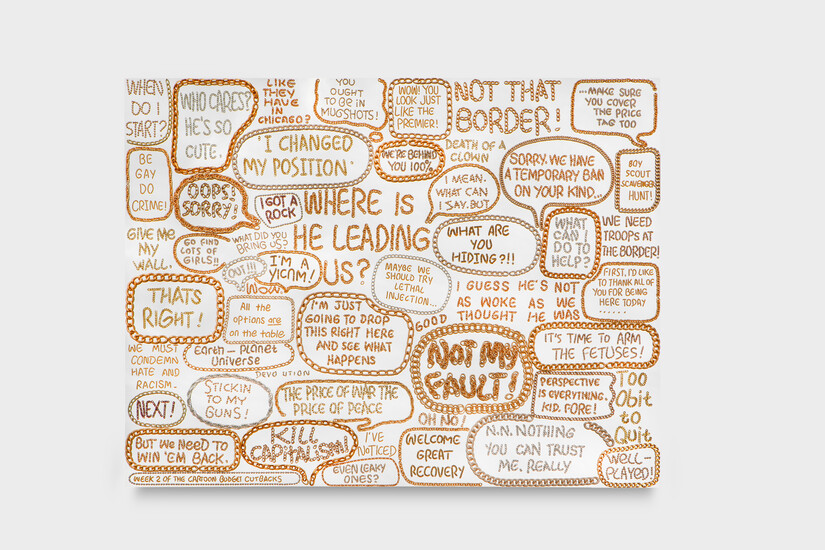 WHEN
DO I
START?
WHO CARES?
HE'S SO
CUTE.
LIKE
THEY
HAVE
IN
CHICAGO?
YOU
OUGHT
TO BE IN
MUGSHOTS!
WOW! YOU
LOOK JUST
LIKE THE
PREMIER!
NOT THAT
BORDER!
...MAKE SURE
YOU COVER
THE PRICE
TAG TOO
'I CHANGED
MY POSITION.'
WE'RE BEHIND
YOU 100%
DEATH OF A
CLOWN
SORRY. WE HAVE
A TEMPORARY BAN
ON YOUR KIND...
BOY
SCOUT
SCAVENGER
HUNT!
BE
GAY
DO
CRIME!
OOPS!
SORRY!
I GOT A
ROCK
WHERE IS
HE LEADING
US?
I MEAN.
WHAT CAN
I SAY. BUT
GIVE ME
MY
WALL.
GO FIND
LOTS OF
GIRLS!!
WHAT DID YOU
BRING US?
WHAT ARE
YOU
HIDING?!!
WHAT
CAN I
DO TO
HELP?
WE NEED
TROOPS AT
THE BORDER!
OUT!!!
I'M A
VICTIM!
WOW
MAYBE WE
SHOULD TRY
LETHAL
INJECTION...
FIRST, I'D LIKE
TO THANK ALL OF
YOU FOR BEING
HERE TODAY
......
THATS
RIGHT!
All the
options are
on the table
I'M JUST
GOING TO DROP
THIS RIGHT HERE
AND SEE WHAT
HAPPENS
I GUESS HE'S NOT
AS WOKE AS WE
THOUGHT HE WAS
GOOD
NOT MY
FAULT!
IT'S TIME TO ARM
THE FETUSES!
WE MUST
CONDEMN
HATE AND
RACISM.
Earth - Planet
Universe
DEVOLUTION
STICKIN
TO MY
GUNS!
THE PRICE OF WAR THE
PRICE OF PEACE
PERSPECTIVE
IS EVERYTHING,
KID. FORE!
TOO
Obit
to
Quit
NEXT!
OH NO!
BUT WE NEED TO
WIN 'EM BACK.
KILL
CAPITALISM!
I'VE
NOTICED
WELCOME
GREAT
RECOVERY
N.N. NOTHING
YOU CAN TRUST
ME, REALLY
WELL-
PLAYED!
EVEN LEAKY
ONES?
WEEK 2 OF THE CARTOON BUDGET CUTBACKS